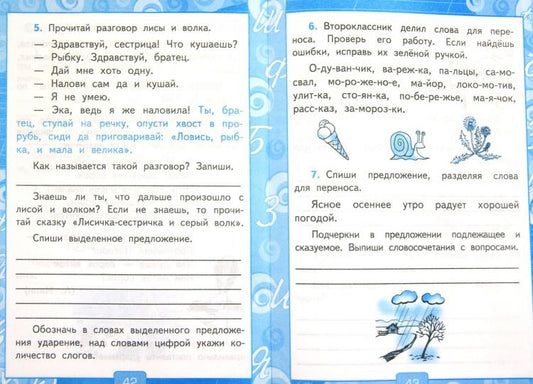 5. Прочитай разговор лисы и волка.
— Здравствуй, сестрица! Что кушаешь?
— Рыбку. Здравствуй, братец.
— Дай мне хоть одну.
— Налови сам да и кушай.
— Я не умею.
— Эка, ведь я же наловила! Ты, бра-
тец, ступай на речку, опусти хвост в про-
рубь, сиди да приговаривай: «Ловись, рыб-
ка, и мала и велика».
Как называется такой разговор? Запиши.
Знаешь ли ты, что дальше произошло с
лисой и волком? Если не знаешь, то прочи-
тай сказку «Лисичка-сестричка и серый волк».
Спиши выделенное предложение.
Обозначь в словах выделенного предложе-
ния ударение, над словами цифрой укажи ко-
личество слогов.
42
6. Второклассник делил слова для пере-
носа. Проверь его работу. Если найдёшь
ошибки, исправь их зелёной ручкой.
О-ду-ван-чик, ва-реж-ка, па-льцы, са-мо-
свал, мо-ро-же-но-е, ма-йор, локо-мо-тив,
улит-ка, сто-ян-ка, по-бе-ре-жье, ма-я-чок,
расс-каз, за-мороз-ки.
7. Спиши предложение, разделяя слова
для переноса.
Ясное осеннее утро радует хорошей
погодой.
Подчеркни в предложении подлежащее и
сказуемое. Выпиши словосочетания с вопросами.
43